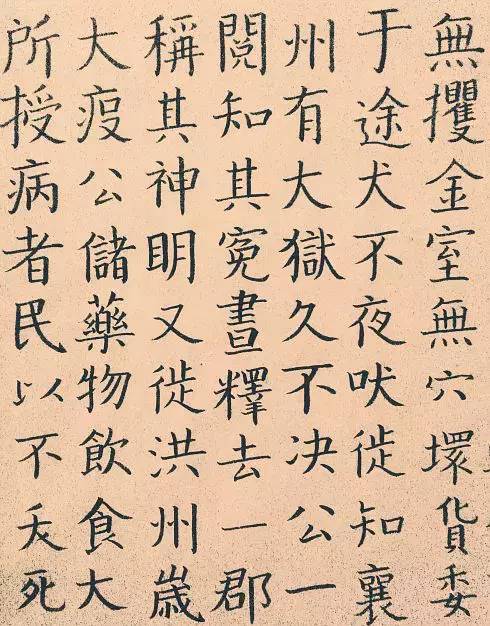 無攫金室無穴壞貨委
于途犬不夜吠徙知襄
州有大獄久不决公一
閱知其寃晝釋去一郡
稱其神明又徙洪州歲
大疫公儲藥物飲食大
所授病者民以不夭死